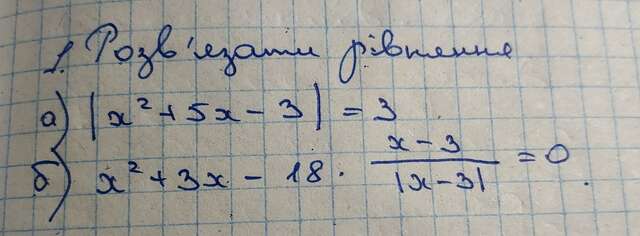 1. Розв'язати рівняння
а) |x² + 5x - 3| = 3
б) x² + 3x - 18 · (x - 3)/|x - 3| = 0.